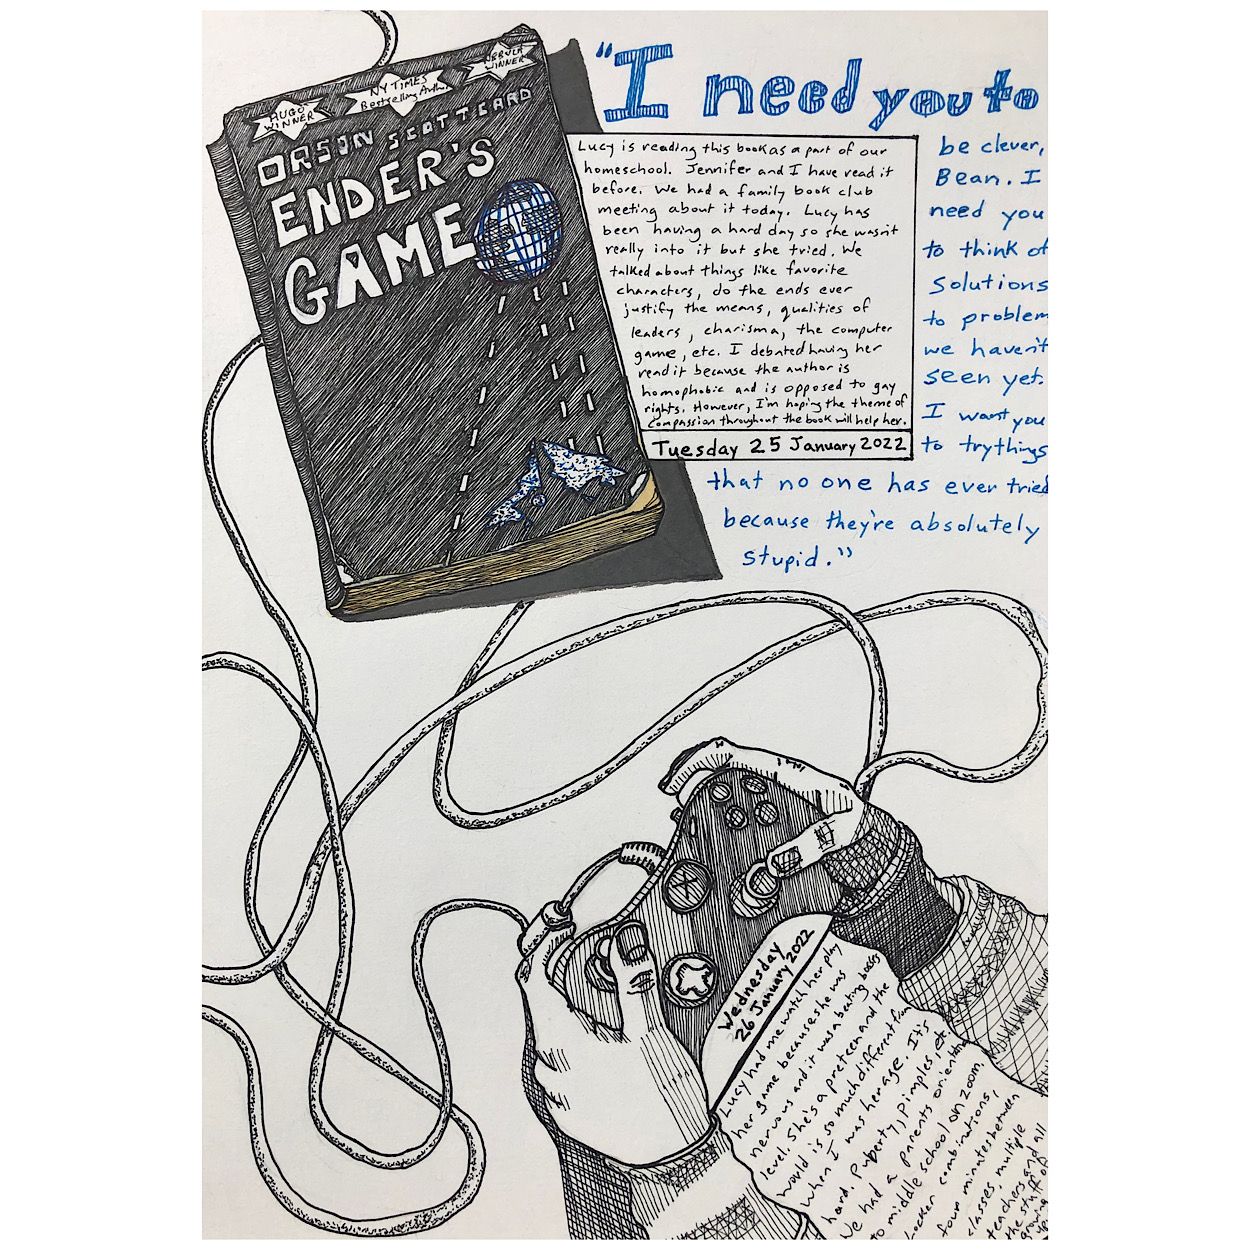 HUGO
WINNER
NY TIMES
Bestselling Author
NEBULA
WINNER
ORSON SCOTT CARD
ENDER'S
GAME
"I need you to
be clever,
Bean. I
need you
to think of
solutions
to problem
we haven't
seen yet.
I want you
to try things
that no one has ever tried
because they're absolutely
stupid."
Lucy is reading this book as a part of our
homeschool. Jennifer and I have read it
before. We had a family book club
meeting about it today. Lucy has
been having a hard day so she wasn't
really into it but she tried. We
talked about things like favorite
characters, do the ends ever
justify the means, qualities of
leaders, charisma, the computer
game, etc. I debated having her
read it because the author is
homophobic and is opposed to gay
rights. However, I'm hoping the theme of
compassion throughout the book will help her.
Tuesday 25 January 2022
Wednesday
26 January 2022
Lucy had me watch her play
her game because she was
nervous and it was a beating bosses
level. She's a preteen and the
world is so much different from
when I was her age. It's
hard. Puberty, pimples, etc
We had a parents orienta
to middle school on zoom
Locker combinations,
four minutes between
classes, multiple
teachers and all
the stuff of
growing